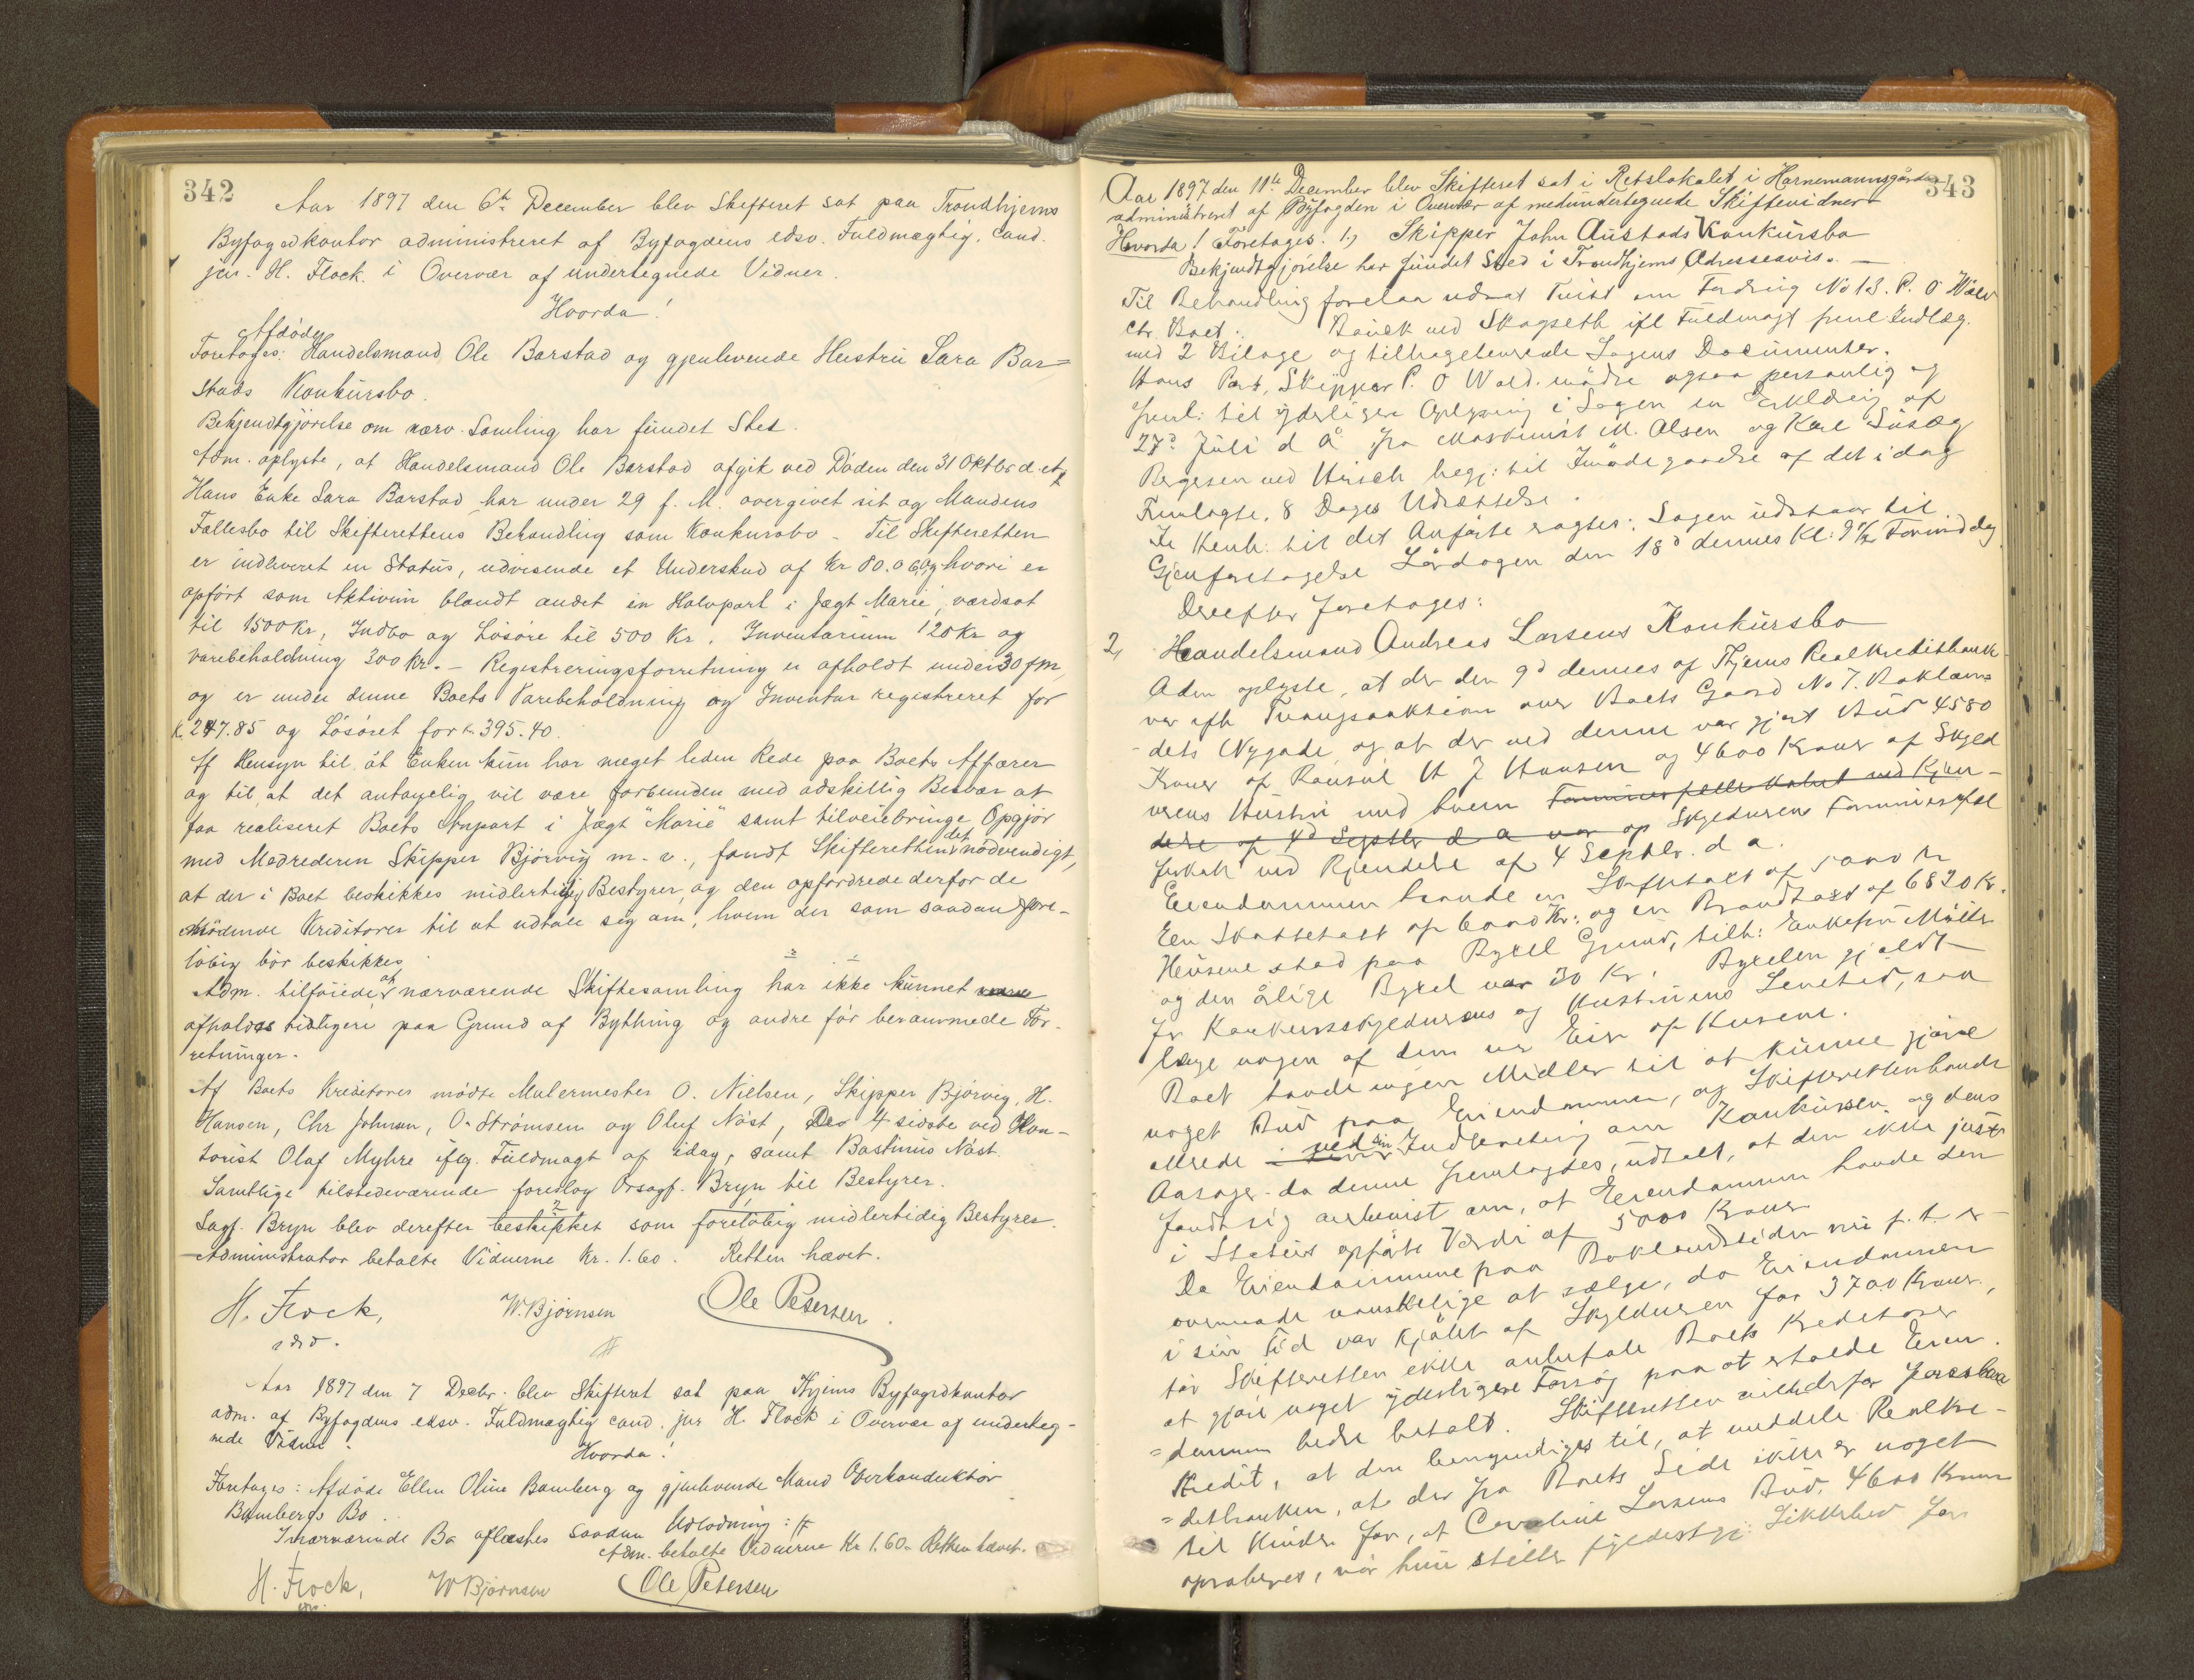 342
Aar 1897 den 6te December blev Skifteret sat paa Trondhjems
Byfogedkontor administreret af Byfogdens edsv. Fuldmægtig, cand.
jur. H. Flock i Overvær af undertegnede Vidner.
Hvorda!
Afdøde
Foretoges: Handelsmand Ole Barstad og gjenlevende Hustru Sara Bar=
stads Konkursbo.
Bekjendtgjørelse om nærv. Samling har fundet Sted.
Adm. oplyste, at Handelsmand Ole Barstad afgik ved Døden den 31 Oktbr d.
Hans Enke Sara Barstad har under 29 f. M. overgivet sit og Mandens
Fællesbo til Skifterettens Behandling som Konkursbo. Til Skifteretten
er indleveret en Status, udvisende et Underskud af Kr 80.06, og hvori er
opført som Aktivum blandt andet en Halvpart i Jægt Marie, værdsat
til 1500 Kr, Indbo og Løsøre til 500 Kr, Inventarium 120 Kr og
Varebeholdning 300 Kr. – Registreringsforretning er afholdt under 30 f M,
og er under denne Boets Varebeholdning og Inventar registreret for
K. 247.85 og Løsøret for K. 395.40.
Af Hensyn til, at Enken kun har meget liden Rede paa Boets Affærer
og til, at det antagelig vil være forbunden med adskillig Besvær at
faa realiseret Boets Anpart i Jægt "Marie" samt tilveiebringe Opgjør
med Medrederen Skipper Bjørvig m. v., fandt Skifteretten det nødvendigt,
at der i Boet beskikkes midlertidig Bestyrer, og den opfordrede derfor de
mødende Kreditorer til at udtale sig om, hvem der som saadan fore-
løbig bør beskikkes.
Adm. tilføiede, at nærværende Skiftesamling har ikke kunnet
afholdes tidligere paa Grund af Bything og andre før berammede For-
retninger.
Af Boets Kreditorer mødte Malermester O. Nielsen, Skipper Bjørvig, H.
Hansen, Chr Johnsen, O. Strømsen og Oluf Nøst, De 4 sidste ved Kon-
torist Olaf Myhre iflg. Fuldmagt af idag, samt Bastinius Nøst.
Samtlige tilstedeværende foreslog Orsagf. Bryn til Bestyrer.
Sagf. Bryn blev derefter beskikket som foreløbig midlertidig Bestyrer.
Administrator betalte Vidnerne Kr. 1.60. Retten hævet.
H. Flock, W. Bjørnsen Ole Petersen
edsv.
Aar 1897 den 7 Decbr. blev Skifteret sat paa Thjems Byfogedkontor
adm. af Byfogdens edsv. Fuldmægtig cand. jur H. Flock i Overvær af underteg-
nede Vidner.
Hvorda!
Foretoges: Afdøde Ellen Oline Bamberg og gjenlevende Mand Overkonduktør
Bambergs Bo.
I nærværende Bo aflæstes saadan Udlodning:
Adm. betalte Vidnerne Kr 1.60. Retten hævet.
H. Flock, W Bjørnsen Ole Petersen
343
Aar 1897 den 11te December blev Skifteret sat i Retslokalet i Hornemannsgården
administreret af Byfogden i Overvær af medundertegnede Skiftevidner
Hvorda! Foretoges. 1., Skipper John Austads Konkursbo
Bekjendtgjørelse har fundet Sted i Trondhjems Adresseavis. –
Til Behandling forelaa udsat Tvist om Fordring No 13. P. O Wæld
ctr. Boet: ved Skogseth ifl Fuldmagt freml Indlæg.
med 2 Bilage og tilbageleverede Sagens Documenter.
Hans Part, Skipper P. O Wæld. mødte ogsaa personlig og
freml. til yderligere Oplysning i Sagen en Erklæring af
27d Juli d A fra Maskinist M. Olsen og Karl
Bergesen ved Hirsch begj. til Imødegaaelse af det idag
Fremlagte, 8 Dages Udsættelse.
I Henh. til det Anførte sagtes: Sagen udstaar til
Gjenforetagelse Lørdagen den 18d dennes Kl: 9 1/2 Formiddag
Derefter foretoges:
2, Handelsmand Andreas Larsens Konkursbo
Adm oplyste, at der den 9d dennes af Thjems Realkreditbank
var afh Tvangsauktion over Boets Gaard No 7. Baklan-
dets Nygade, og at der ved denne var gjort Bud 4580
Kroner af Konsul H J Hansen og 4600 Kroner af Skyld
nerens Hustru med hvem Formuesfællesskabet ved Kjen-
delse af 4d Septbr d a var op Skyldneren Formuesfæl
leskab ved Kjendelse af 4 Septbr. d a.
Eiendommen havde en Skiftetaxt af 5000 Kr
Een Skattetaxt af 6000 Kr. og en Brandtaxt af 6820 Kr.
Husene stod paa Byxel Grund, tilh: Enkefru Møller
og den årlige Byxel var 30 Kr. Byxelen gjaldt
for Konkursskyldnerens og Hustruens Levetid, saa
længe nogen af dem var Eier af Husene.
Boet havde ingen Midler til at kunne gjøre
noget Bud paa Eiendommen, og Skifteretten havde
allerede ved sin Indberetning om Konkursen og dens
Aarsager – da denne fremlagdes, udtalt, at den ikke just
fandt sig overbevist om, at Eiendommen havde den
i Status opførte Værdi af 5000 Kroner
Da Eiendommene paa Baklandssiden nu f. t. er
overmaade vanskelige at sælge, da Eiendommen
i sin Tid var kjøbt af Skyldneren for 3700 Kroner,
tør Skifteretten ikke anbefale Boets Kreditorer
at gjøre noget yderligere Forsøg paa at erholde Eien
=dommen bedre betalt. Skifteretten vilde derfor foreslaa
Kredit, at den bemyndiges til, at meddele Realkre-
=ditbanken, at der fra Boets Side ikke er noget
til Hinder for, at Caroline Larsens Bud, 4600 Kroner
approberes, når hun stiller fyldestgj. Sikkerhed for